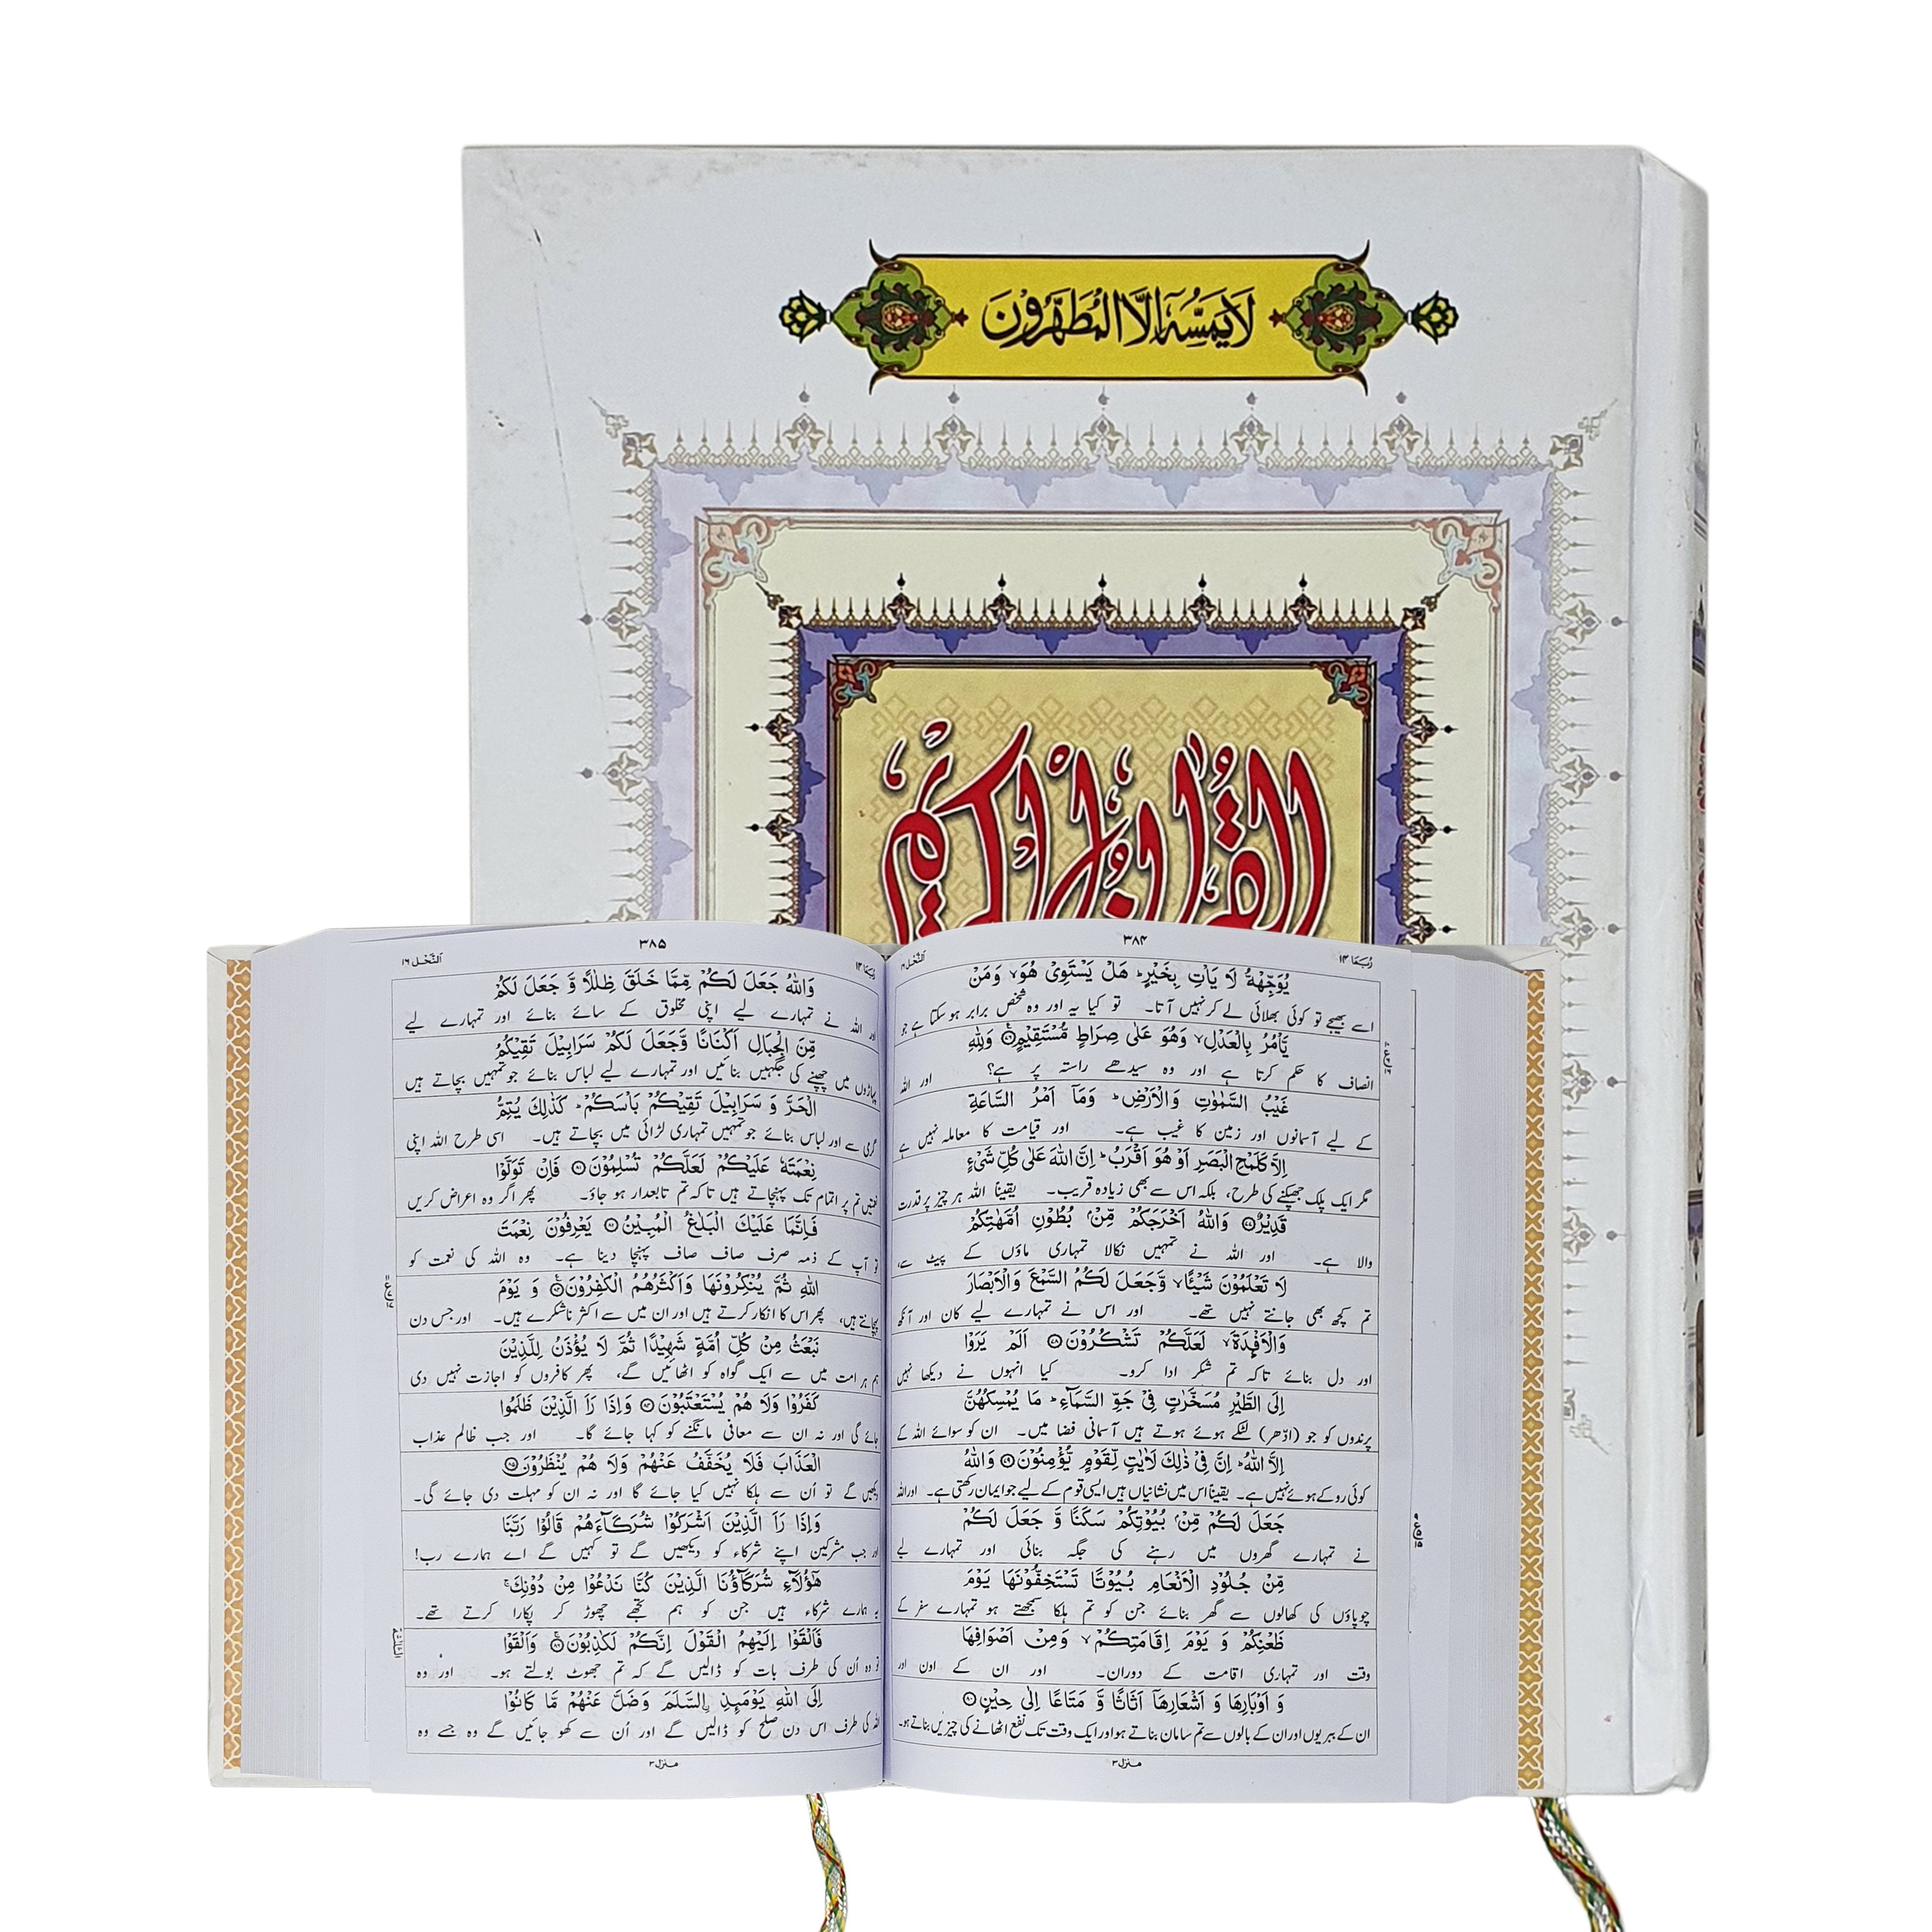 لَا يَمَسُّهٗۤ اِلَّا الْمُطَهَّرُوْنَ
القرآن الكريم
رُبَمَا ۱۴
۳۸۴
اَلنَّحْل ۱۶
يُوَجِّهْهُّ لَا يَاْتِ بِخَيْرٍ ؕ هَلْ يَسْتَوِىْ هُوَ ۙ وَمَنْ
اسے بھیجے تو کوئی بھلائی لے کر نہیں آتا۔ تو کیا یہ اور وہ شخص برابر ہو سکتا ہے جو
يَّاْمُرُ بِالْعَدْلِ ۙ وَهُوَ عَلٰى صِرَاطٍ مُّسْتَقِيْمٍ وَلِلّٰهِ
انصاف کا حکم کرتا ہے اور وہ سیدھے راستہ پر ہے؟ اور اللہ
غَيْبُ السَّمٰوٰتِ وَالْاَرْضِ ؕ وَمَاۤ اَمْرُ السَّاعَةِ
کے لیے آسمانوں اور زمین کا غیب ہے۔ اور قیامت کا معاملہ نہیں ہے
اِلَّا كَلَمْحِ الْبَصَرِ اَوْ هُوَ اَقْرَبُ ؕ اِنَّ اللّٰهَ عَلٰى كُلِّ شَىْءٍ
مگر ایک پلک جھپکنے کی طرح، بلکہ اس سے بھی زیادہ قریب۔ یقیناً اللہ ہر چیز پر قدرت
قَدِيْرٌ وَاللّٰهُ اَخْرَجَكُمْ مِّنْۢ بُطُوْنِ اُمَّهٰتِكُمْ
والا ہے۔ اور اللہ نے تمہیں نکالا تمہاری ماؤں کے پیٹ سے،
لَا تَعْلَمُوْنَ شَيْـًٔا ۙ وَّجَعَلَ لَكُمُ السَّمْعَ وَالْاَبْصَارَ
تم کچھ بھی جانتے نہیں تھے۔ اور اس نے تمہارے لیے کان اور آنکھ
وَالْاَفْـِٕدَةَ ۙ لَعَلَّكُمْ تَشْكُرُوْنَ اَلَمْ يَرَوْا
اور دل بنائے تاکہ تم شکر ادا کرو۔ کیا انہوں نے دیکھا نہیں
اِلَى الطَّيْرِ مُسَخَّرٰتٍ فِىْ جَوِّ السَّمَآءِ ؕ مَا يُمْسِكُهُنَّ
پرندوں کو جو (ادھر) لٹکے ہوئے ہوتے ہیں آسمانی فضا میں۔ ان کو سوائے اللہ کے
اِلَّا اللّٰهُ ؕ اِنَّ فِىْ ذٰلِكَ لَاٰيٰتٍ لِّقَوْمٍ يُّؤْمِنُوْنَ وَاللّٰهُ
کوئی روکے ہوئے نہیں ہے۔ یقیناً اس میں نشانیاں ہیں ایسی قوم کے لیے جو ایمان رکھتی ہے۔ اور اللہ
جَعَلَ لَكُمْ مِّنْۢ بُيُوْتِكُمْ سَكَنًا وَّ جَعَلَ لَكُمْ
نے تمہارے گھروں میں رہنے کی جگہ بنائی اور تمہارے لیے
مِّنْ جُلُوْدِ الْاَنْعَامِ بُيُوْتًا تَسْتَخِفُّوْنَهَا يَوْمَ
چوپاؤں کی کھالوں سے گھر بنائے جن کو تم ہلکا سمجھتے ہو تمہارے سفر کے
ظَعْنِكُمْ وَ يَوْمَ اِقَامَتِكُمْ ۙ وَمِنْ اَصْوَافِهَا
وقت اور تمہاری اقامت کے دوران۔ اور ان کے اون اور
وَ اَوْبَارِهَا وَ اَشْعَارِهَاۤ اَثَاثًا وَّ مَتَاعًا اِلٰى حِيْنٍ
ان کے ببریوں اور ان کے بالوں سے تم سامان بناتے ہو اور ایک وقت تک نفع اٹھانے کی چیزیں بناتے ہو۔
منزل ۳
رُبَمَا ۱۴
۳۸۵
اَلنَّحْل ۱۶
وَاللّٰهُ جَعَلَ لَكُمْ مِّمَّا خَلَقَ ظِلٰلًا وَّ جَعَلَ لَكُمْ
اور اللہ نے تمہارے لیے اپنی مخلوق کے سائے بنائے اور تمہارے لیے
مِّنَ الْجِبَالِ اَكْنَانًا وَّجَعَلَ لَكُمْ سَرَابِيْلَ تَقِيْكُمُ
پہاڑوں میں چھپنے کی جگہیں بنائیں اور تمہارے لیے لباس بنائے جو تمہیں بچاتے ہیں
الْحَرَّ وَ سَرَابِيْلَ تَقِيْكُمْ بَاْسَكُمْ ؕ كَذٰلِكَ يُتِمُّ
گرمی سے اور لباس بنائے جو تمہیں تمہاری لڑائی میں بچاتے ہیں۔ اسی طرح اللہ اپنی
نِعْمَتَهٗ عَلَيْكُمْ لَعَلَّكُمْ تُسْلِمُوْنَ فَاِنْ تَوَلَّوْا
نعمتیں تم پر اتمام تک پہنچاتے ہیں تاکہ تم تابعدار ہو جاؤ۔ پھر اگر وہ اعراض کریں
فَاِنَّمَا عَلَيْكَ الْبَلٰغُ الْمُبِيْنُ يَعْرِفُوْنَ نِعْمَتَ
تو آپ کے ذمہ صرف صاف صاف پہنچا دینا ہے۔ وہ اللہ کی نعمت کو
اللّٰهِ ثُمَّ يُنْكِرُوْنَهَا وَاَكْثَرُهُمُ الْكٰفِرُوْنَ وَ يَوْمَ
پہچانتے ہیں، پھر اس کا انکار کرتے ہیں اور ان میں سے اکثر ناشکرے ہیں۔ اور جس دن
نَبْعَثُ مِنْ كُلِّ اُمَّةٍ شَهِيْدًا ثُمَّ لَا يُؤْذَنُ لِلَّذِيْنَ
ہم ہر امت میں سے ایک گواہ کو اٹھائیں گے، پھر کافروں کو اجازت نہیں دی
كَفَرُوْا وَلَا هُمْ يُسْتَعْتَبُوْنَ وَاِذَا رَاَ الَّذِيْنَ ظَلَمُوا
جائے گی اور نہ ان سے معافی مانگنے کو کہا جائے گا۔ اور جب ظالم عذاب
الْعَذَابَ فَلَا يُخَفَّفُ عَنْهُمْ وَلَا هُمْ يُنْظَرُوْنَ
دیکھیں گے تو اُن سے ہلکا نہیں کیا جائے گا اور نہ ان کو مہلت دی جائے گی۔
وَاِذَا رَاَ الَّذِيْنَ اَشْرَكُوْا شُرَكَآءَهُمْ قَالُوْا رَبَّنَا
اور جب مشرکین اپنے شرکاء کو دیکھیں گے تو کہیں گے اے ہمارے رب!
هٰۤؤُلَآءِ شُرَكَآؤُنَا الَّذِيْنَ كُنَّا نَدْعُوْا مِنْ دُوْنِكَ ۚ
یہ ہمارے شرکاء ہیں جن کو ہم تجھے چھوڑ کر پکارا کرتے تھے۔
فَاَلْقَوْا اِلَيْهِمُ الْقَوْلَ اِنَّكُمْ لَكٰذِبُوْنَ وَاَلْقَوْا
تو وہ اُن کی طرف بات کو ڈالیں گے کہ تم جھوٹ بولتے ہو۔ اور وہ
اِلَى اللّٰهِ يَوْمَىِٕذِ ࣙالسَّلَمَ وَضَلَّ عَنْهُمْ مَّا كَانُوْا
اللہ کی طرف اس دن صلح کو ڈالیں گے اور اُن سے کھو جائیں گے وہ جسے وہ
منزل ۳